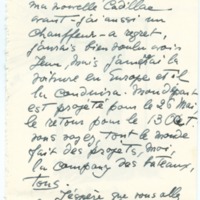 ma nouvelle Cadillac
avant - j'ai aussi un
chauffeur - a regret,
j'aurais bien voulu vois
Jeux, mais j'amettais la
voiture en Europe et il
la conduira. Mon départ
est projeté pour le 26 Mai,
le retour pour le 13 Oct
vous voyez, tout le monde
fait des projets, moi,
la compagnie des bateaux,
Tous.
J'espère que vous allez